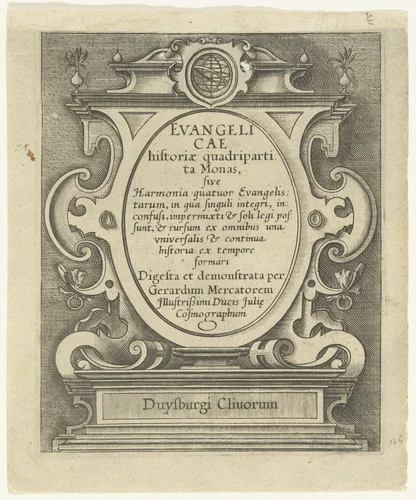 EVANGELI
CAE
historiæ quadriparti
ta Monas,
ſive
Harmonia quatuor Evangelis:
tarum, in qua ſinguli integri, in:
confuſi, impermixti & ſoli legi poſ
ſunt, & rurſum ex omnibus una
vniverſalis & continua
hiſtoria ex tempore
formari
Digeſta et demonſtrata per
Gerardum Mercatorem
Jlluſtriſſimi Ducis Juliæ
Coſmographum
Duyſburgi Clivorum
126